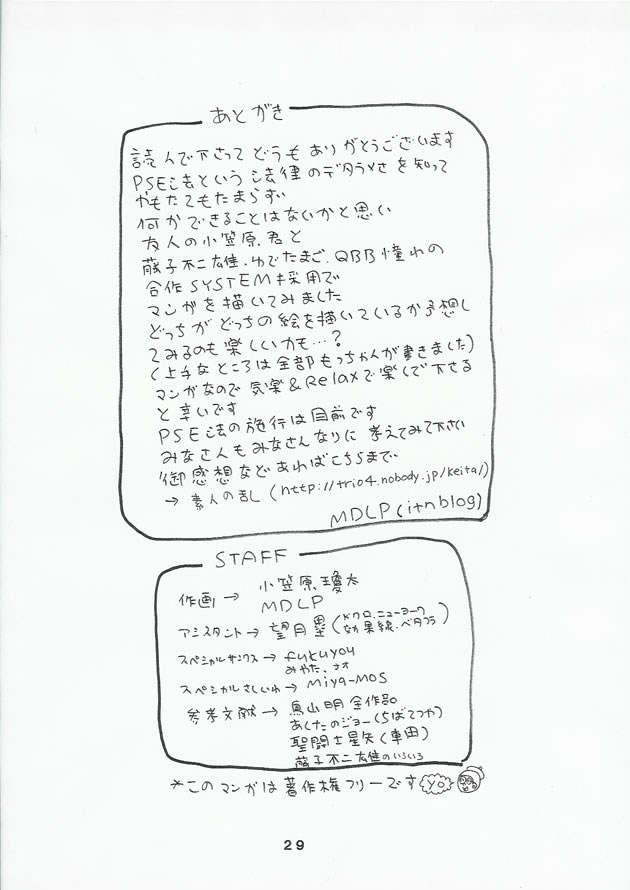 あとがき
読んで下さってどうもありがとうございます
PSE法という法律のデタラメさを知って
やもたてもたまらずい
何かできることはないかと思い
友人の小笠原君と
藤子不二雄、ゆでたまご、QBB憧れの
合作SYSTEM採用で
マンガを描いてみました
どっちがどっちの絵を描いているか予想し
てみるのも楽しいかも…?
(上手なところは全部もっちゃんが書きました)
マンガなので気楽&Relaxで楽しんで下さる
と幸いです
PSE法の施行は目前です
みなさんもみなさんなりに考えてみて下さい
御感想などあればこちらまで、
→ 素人の乱 (http://trio4.nobody.jp/keita/)
MDLP(itnblog)
STAFF
作画 → 小笠原瓊太
MDLP
アシスタント → 望月塁(ドクロ、ニューヨーク
効果線、ベタフラ)
スペシャルサンクス → fukuyou
みやた、ナオ
スペシャルさしいれ → Miya-mos
参考文献 → 鳥山明 全作品
あしたのジョー(ちばてつや)
聖闘士星矢(車田)
藤子不二雄のいろいろ
*このマンガは著作権フリーです YO
29